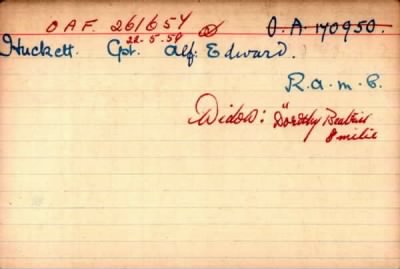 OAF. 261654 O.A. 170950.
22-5-58
Huckett. Cpt. Alf: Edward.
R.a.m.C.
Widow: "Dorothy Beatrice
Emilie